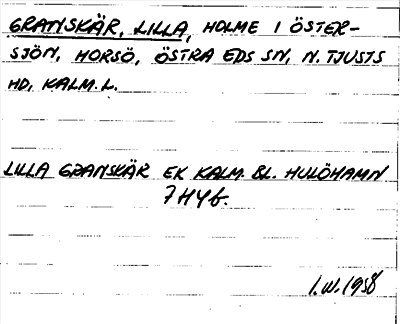 GRANSKÄR, LILLA, HOLME I ÖSTER-
SJÖN, HORSÖ, ÖSTRA EDS SN, N. TJUSTS
HD, KALM. L.
LILLA GRANSKÄR EK KALM. BL. HULÖHAMN
7H4f.
I.W. 1958